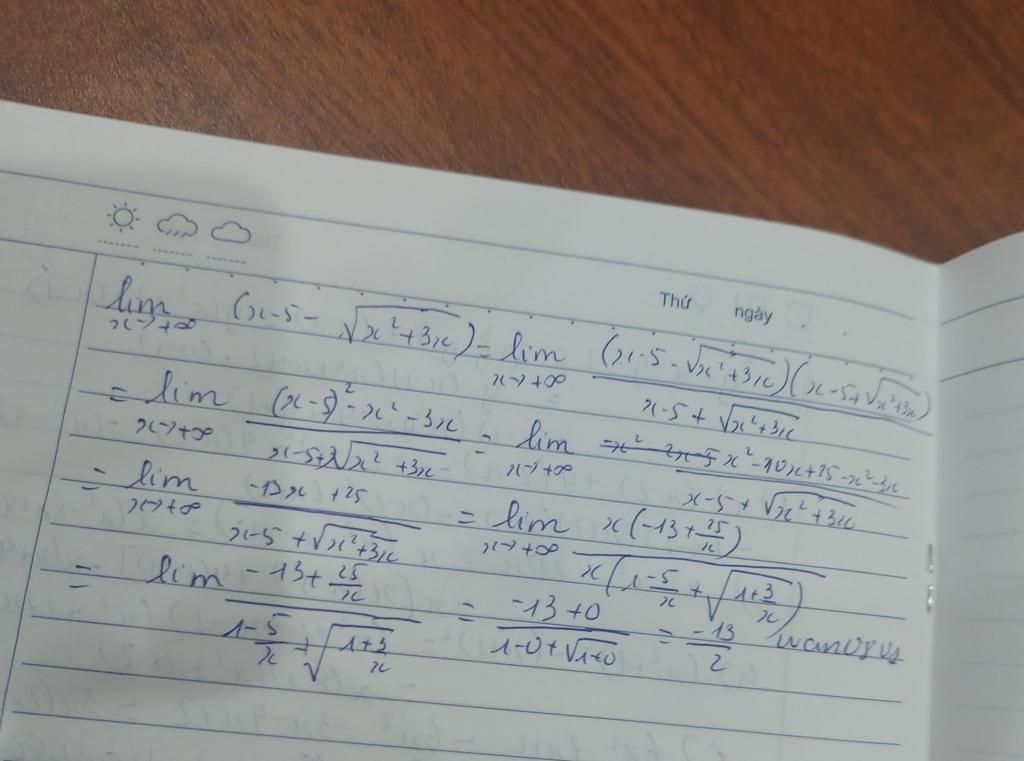 Thứ ngày
lim x→+∞ (x-5-√(x²+3x)) = lim x→+∞ (x-5-√(x²+3x))(x-5+√(x²+3x)) / (x-5+√(x²+3x))
= lim x→+∞ ((x-5)²-x²-3x) / (x-5+√(x²+3x)) = lim x→+∞ (x²-10x+25-x²-3x) / (x-5+√(x²+3x))
= lim x→+∞ (-13x+25) / (x-5+√(x²+3x)) = lim x→+∞ x(-13+25/x) / x(1-5/x+√(1+3/x))
= lim (-13+25/x) / (1-5/x+√(1+3/x)) = (-13+0) / (1-0+√(1+0)) = -13/2